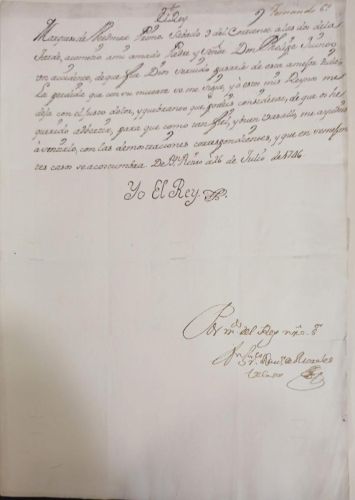 El Rey
Fernando 6º
Marques de Primo. Sabado 9 del Corriente a las dos de la
tarde, acometio a mi amado Padre y señor Don Phelipe Quinto
un accidente, de que fue Dios servido pasarle de esta a mejor vida.
La perdida que con su muerte se me sigue, y a estos mis Reynos me
deja con el justo dolor, y quebranto que podeis considerar, de que os he
querido advertir, para que como tan fiel, y buen vasallo, me ayudeis
a sentirlo, con las demostraciones correspondientes, y que en semejan
tes casos se acostumbra. De Bn Retiro a 16 de Julio de 1746
Yo El Rey
Por mdo del Rey nro Sr